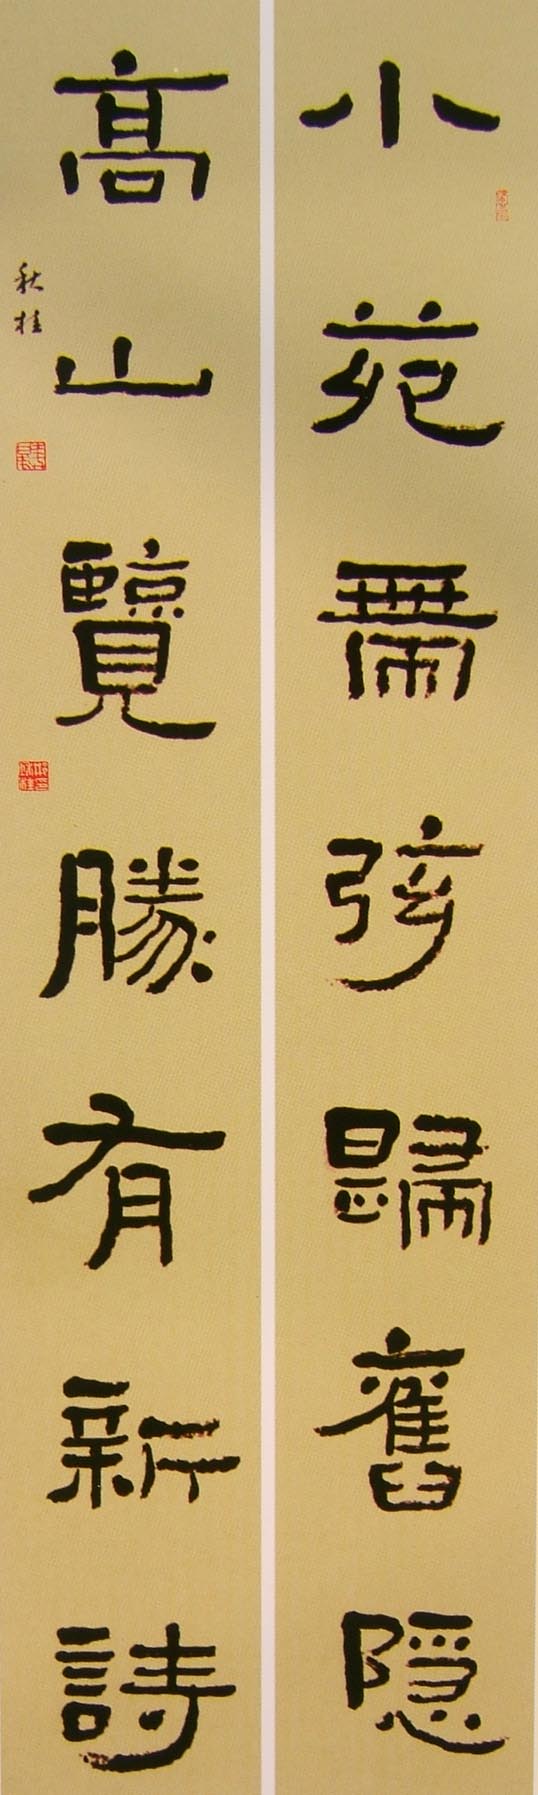 小苑無弦歸舊隱
高山覽勝有新詩
秋桂